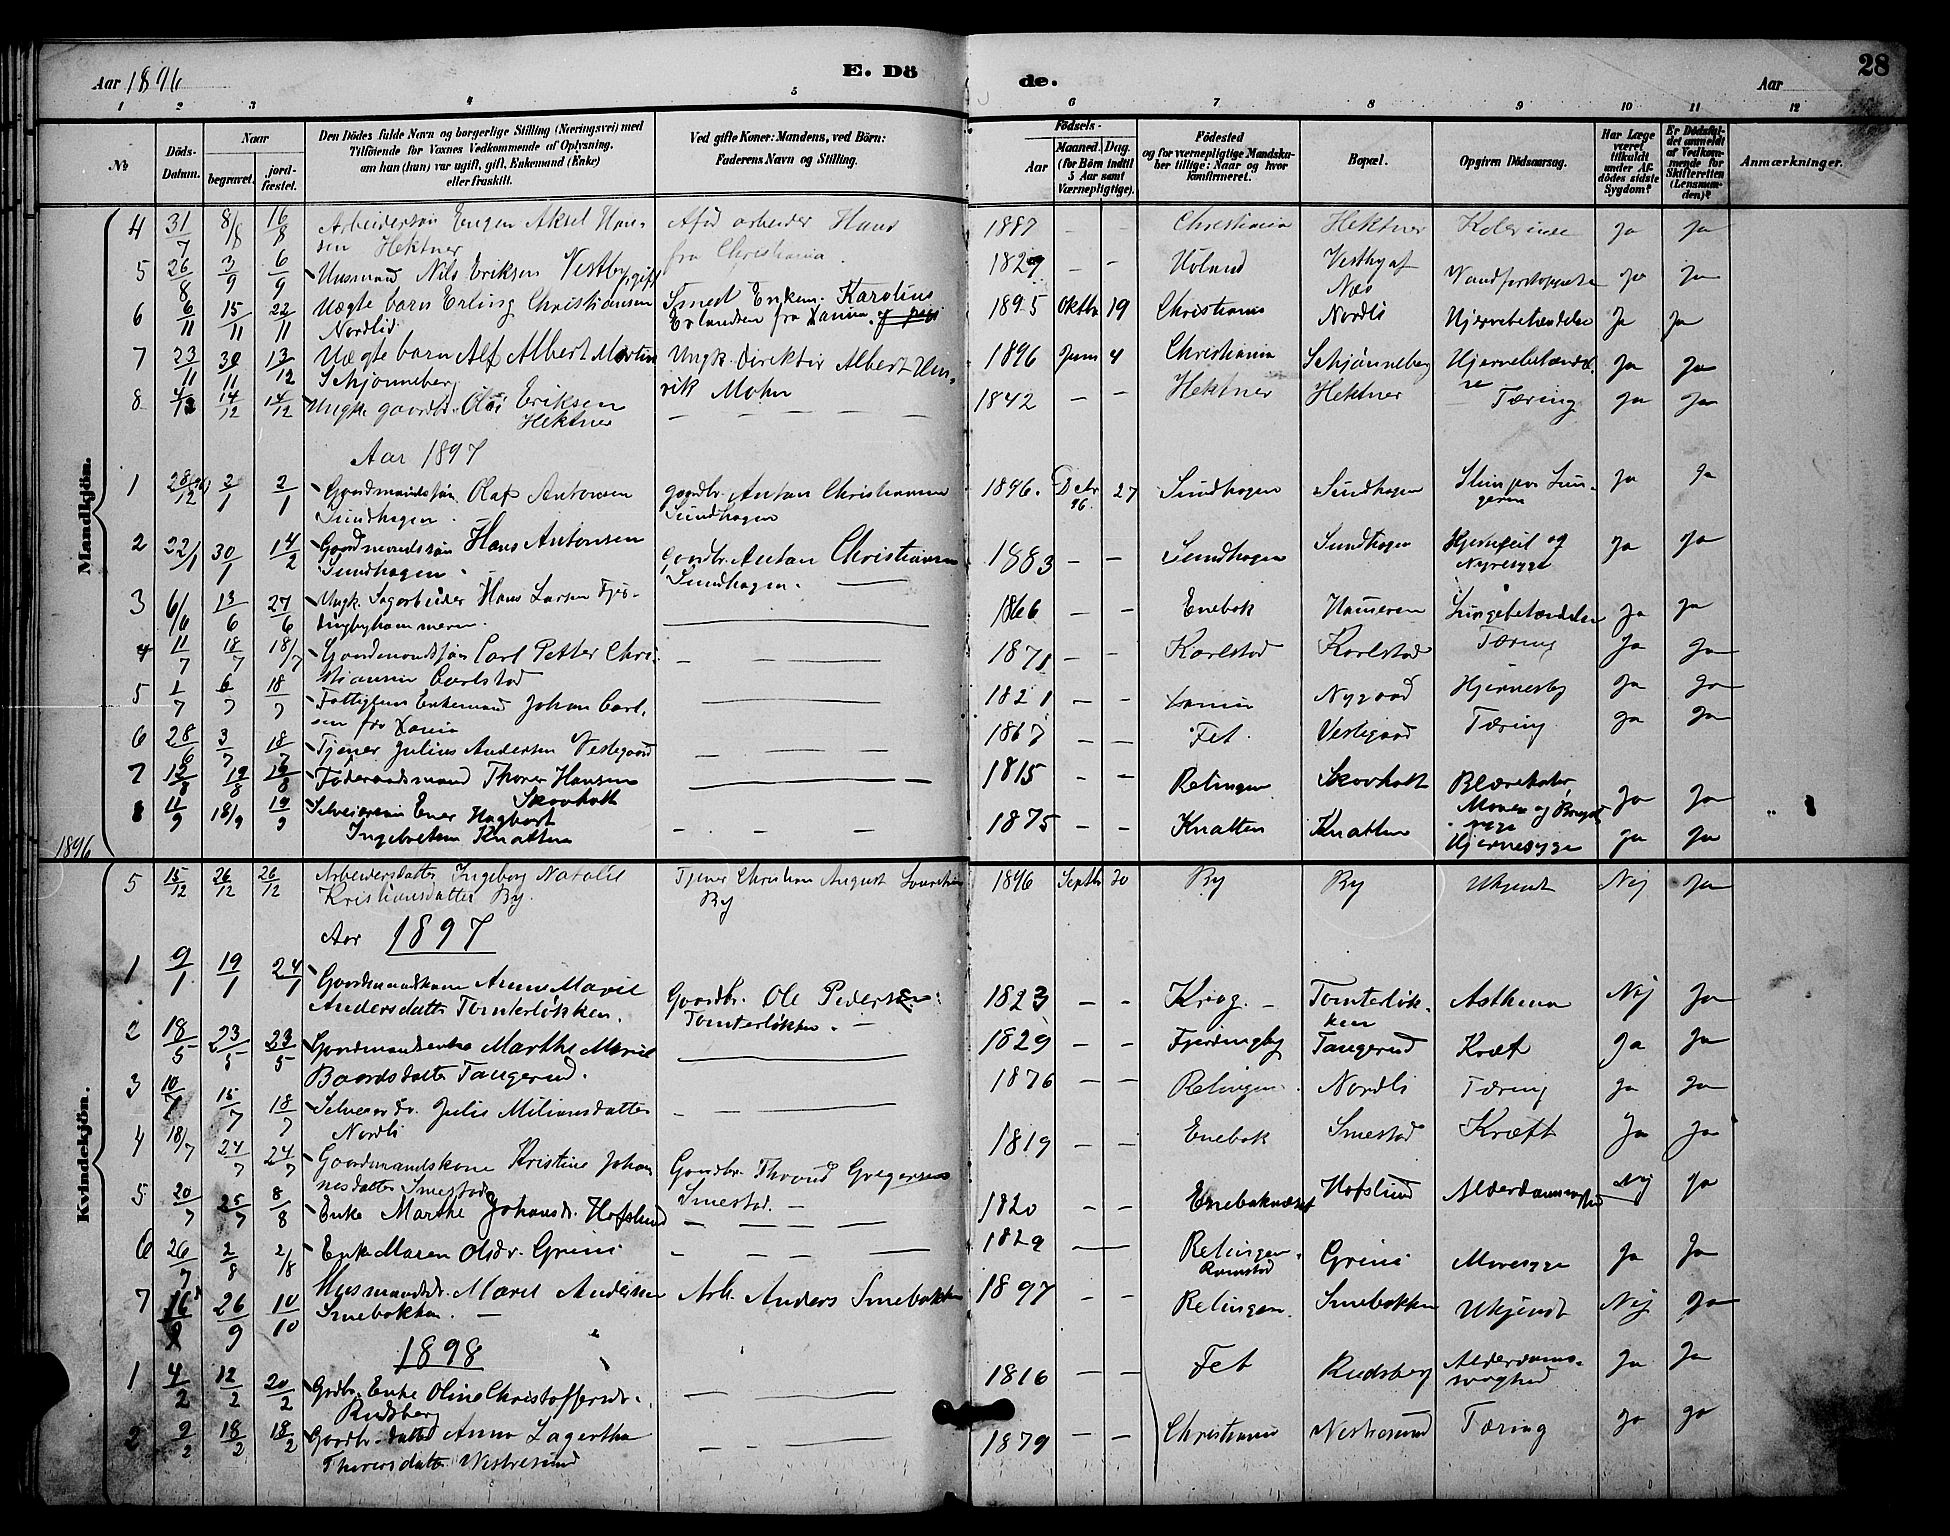 Aar 1896
E. Dö
de.
Aar
28
1 2 3 4 5 6 7 8 9 10 11 12
No
Döds-Datum.
Naar
begravet.
jord-fæstet.
Den Dödes fulde Navn og borgerlige Stilling (Næringsvei) med
Tilföiende for Voxnes Vedkommende af Oplysning,
om han (hun) var ugift, gift, Enkemand (Enke)
eller fraskilt.
Ved gifte Koner: Mandens, ved Börn:
Faderens Navn og Stilling.
Födsels-
Aar
Maaned. Dag.
(for Börn indtil
5 Aar samt
Værnepligtige).
Födested
og for værnepligtige Mandska-
ber tillige: Naar og hvor
konfirmeret.
Bopæl.
Opgiven Dödsaarsag.
Har Læge
været
tilkaldt
under Af-
dödes sidste
Sygdom?
Er Dödsfal-
det anmeldt
af Vedkom-
mende for
Skifteretten
(Lensman-
den)?
Anmærkninger.
Mandkjön.
4 31/7 8/8 16/8 Arbeidersøn Engen Aksel Han- Afd arbeider Hans 1887 - - Christiania Hektner Ja Ja
sen Hektner fra Christiania.
5 26/8 3/9 6/9 Husmand Nils Eriksen Vestby gift 1829 - - Høland Vestby af Ja Ja
Næs
6 6/11 15/11 22/11 Uægte barn Erling Christiansen Smed Enkem. Karolius 1895 Oktbr 19 Christiania Nordli Hjernebetændelse Ja Ja
Nordlid Erlandsen fra Xania.
7 23/11 30/11 13/12 Uægte barn Alf Albert Martin Ungk. Direktør Albert Hen- 1896 Juni 4 Christiania Schjønneberg Hjernebetændel- Ja Ja
Schjønneberg rik Mohn se
8 4/12 14/12 14/12 Ungk. gaardbr. Olai Eriksen - - - - 1842 - - Hektner Hektner Tæring Ja Ja
Hektner
Aar 1897
1 28/12(96) 2/1 2/1 Gaardmandssøn Olaf Antonsen gaardbr. Anton Christiansen 1896. Decbr 27 Sundhagen Sundhagen Slim paa Lun- Ja Ja
Sundhagen. Sundhagen 96. gerne
2 22/1 30/1 14/2 Gaardmandssøn Hans Antonsen Gaardbr. Anton Christiansen 1883 - - Sundhagen Sundhagen Hjertefeil og Ja Ja
Sundhagen. Sundhagen. Nyresyge
3 6/6 13/6 27/6 Ungk. Sagarbeider Hans Larsen Fjer- 1866 - - Enebak Hameren Lungebetændelse Ja Ja
dingbyhammeren.
4 11/7 18/7 18/7 Gaardmandssøn Carl Petter Chri- - - - 1871 - - Karlstad Karlstad Tæring Ja Ja
stiansen Carlstad
5 1/7 6/7 18/7 Fattiglem Enkemand Johan Carl- 1821 - - Xania Nygaard Ja Ja
sen fra Xania
6 28/6 3/7 18/7 Tjener Julius Andersen Vestegaard - - 1867 - - Fet. Vestegaard Tæring. Ja Ja
7 12/8 19/8 19/8 Føderaadsmand Thorer Hansen 1815 - - Relingen Skovholt Blærekatar Ja Ja
Skovholt
8 11/9 18/9 19/9 Selveiersøn Ener Hagbart - - - 1875 - - Knatten Knatten Hjernesyge Ja Ja
Ingebretsen Knatten
1896
Kvindekjön.
5 15/12 26/12 26/12 Arbeidersdatter Ingeborg Natalie Tjener Christian August 1896 Septbr 20 By By Ukjendt Nej Ja
Kristiansdatter By. By
Aar 1897
1 9/1 19/1 24/1 Gaardmandskone Anne Marie Gaardbr. Ole Pedersen: 1823 - - Krog. - Tomterløk- Asthma Nej Ja
Andersdatter Tomterløkken. Tomterløkken. - ken
2 18/5 23/5 23/5 Gaardmandsenke Marthe Marie 1829 - - Fjerdingby Tangerud Kræft Ja Ja
Baardsdatter Tangerud.
3 10/7 15/7 18/7 Selveierdr. Julie Miliansdatter - - 1876 - - Relingen. Nordli Tæring Ja Ja
Nordli
4 18/7 24/7 24/7 Gaardmandskone Kristine Johan- Gaardbr. Thorud Gregersen 1819 - - Enebak Smestad Kræft Ja Ja
nesdatter Smestad Smestad. -
5 20/7 25/7 8/8 Enke Marthe Johansdr. Hofslund - - - - 1820 - - Enebaknæset Hofslund Alderdomssvaghed Nej Ja
6 26/7 2/8 2/8 Enke Maren Olsdr. Grini - - - 1829 Relingen. Grini Mavesyge Ja Ja
Ramstad
7 16/9 26/9 10/10 Husmandsdr. Marie Andersen Arb. Anders Smebakken 1897 - - Relingen. Smebakken Ukjendt Nej Ja
Smebakken -
1898
1 4/2 12/2 20/2 Grdbr. Enke Oline Christoffersdr. - - - 1816 - - Fet Rudsberg Alderdoms- Ja Ja
Rudsberg svaghed
2 9/2 18/2 18/2 Gaardbr. datter Anna Lagertha - - - 1879 - - Christiania Nestresund Tæring Ja Ja
Thorersdatter Nestresund